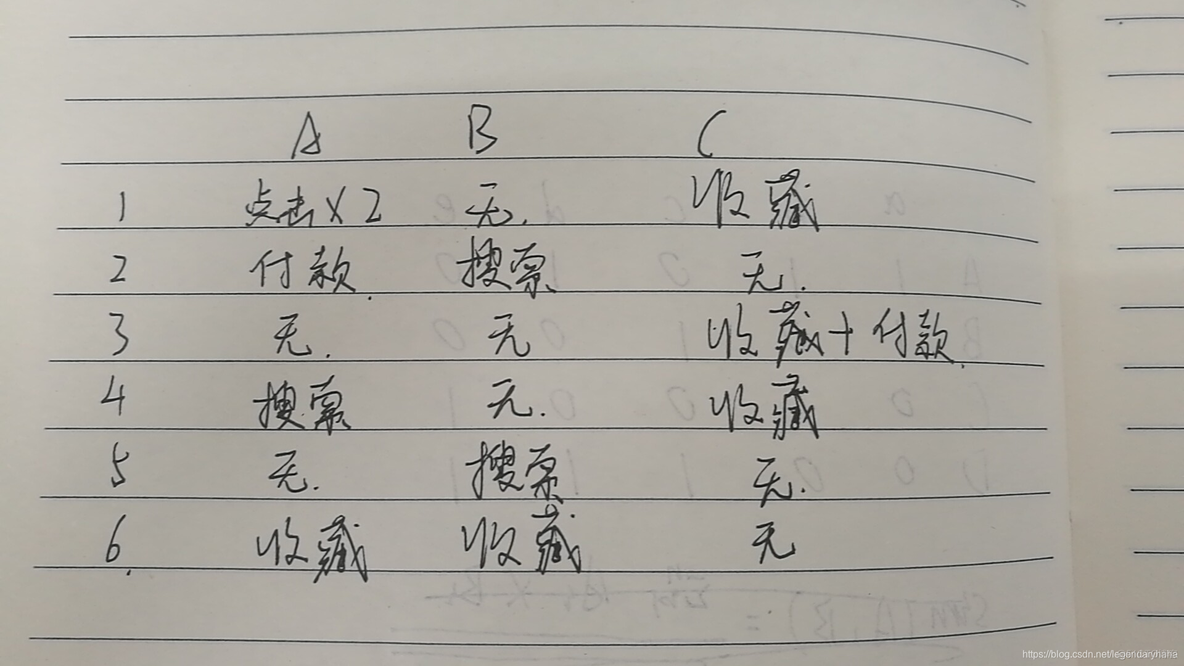 A B C
1 点击×2 无. 收藏
2 付款. 搜索 无.
3 无. 无 收藏+付款.
4 搜索 无. 收藏
5 无. 搜索 无.
6. 收藏 收藏 无
https://blog.csdn.net/legendaryhaha